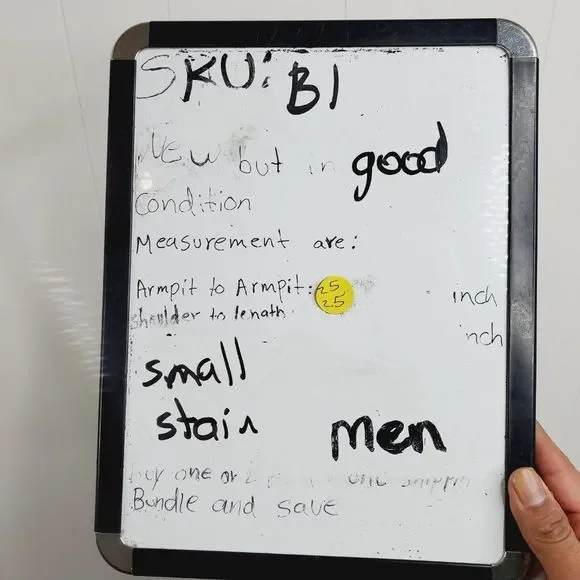 SKU: B1
New but in good
Condition
Measurement are:
Armpit to Armpit: 25 inch
shoulder to lenath 25 inch
small
stain men
buy one or one
Bundle and save